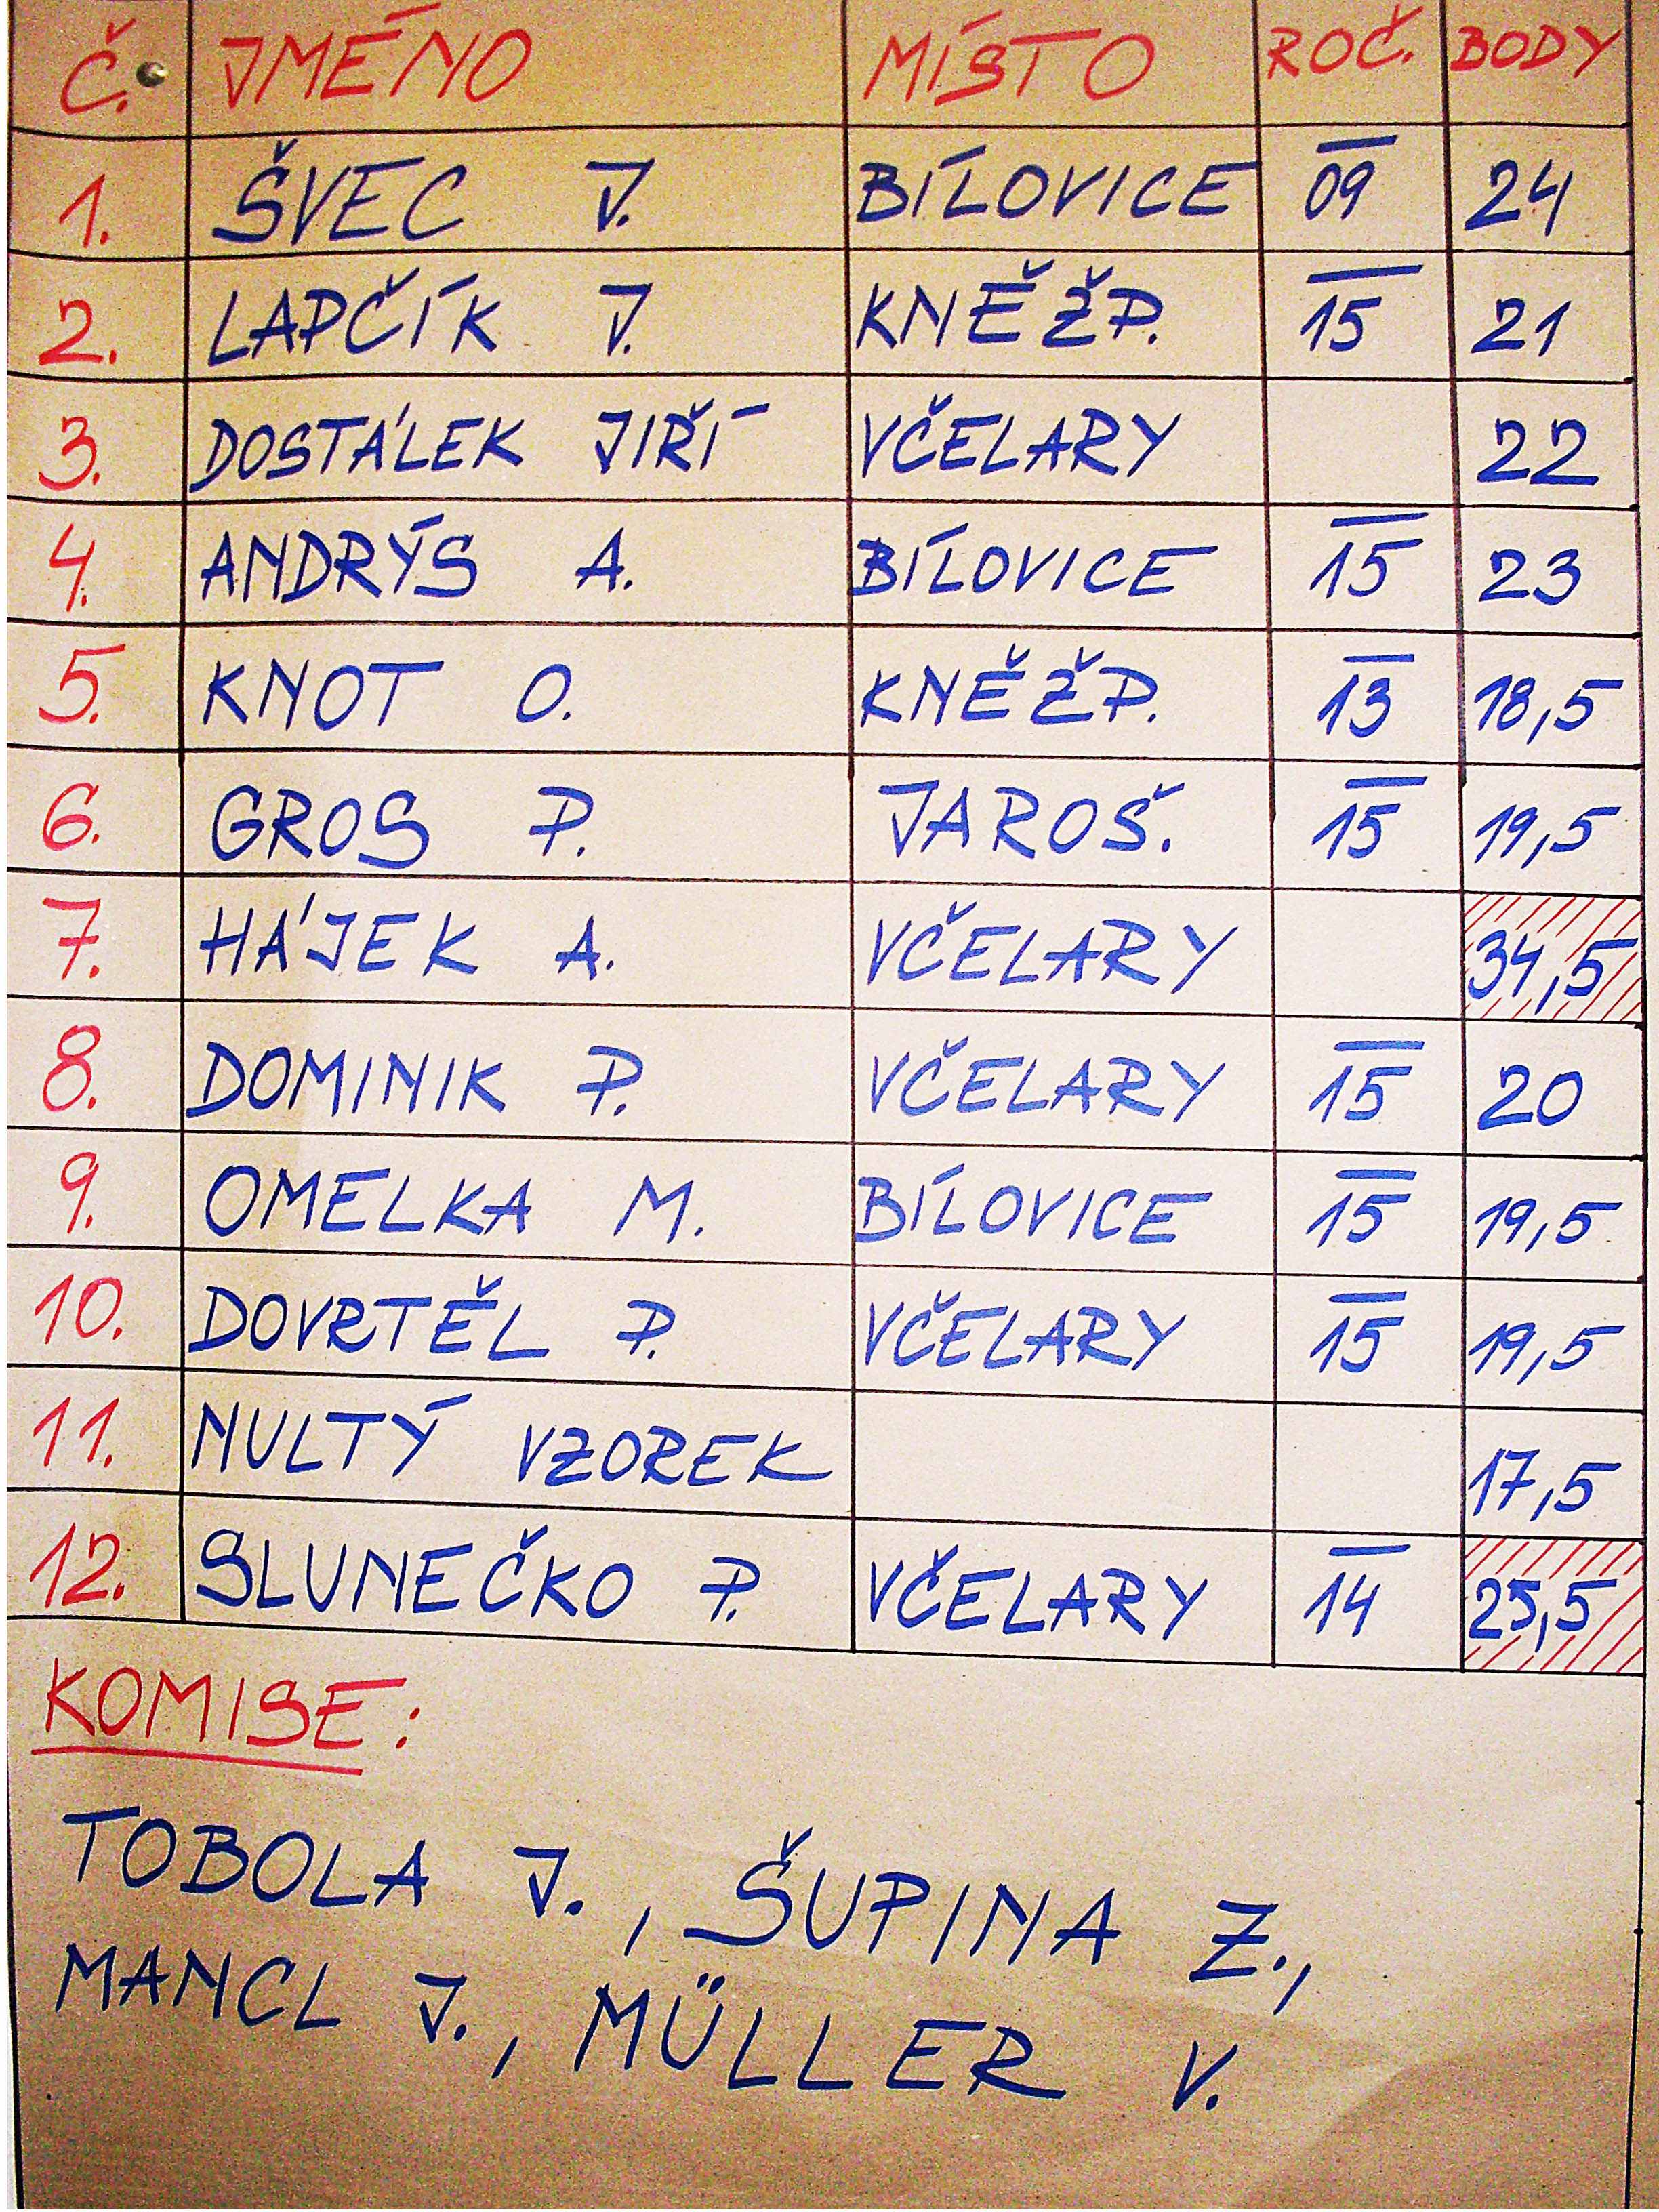 Č. JMÉNO MÍSTO ROČ. BODY
1. ŠVEC J. BÍLOVICE 09 24
2. LAPČÍK J. KNĚŽP. 15 21
3. DOSTÁLEK JIŘÍ VČELARY 22
4. ANDRÝS A. BÍLOVICE 15 23
5. KNOT O. KNĚŽP. 13 18,5
6. GROS P. JAROŠ. 15 19,5
7. HÁJEK A. VČELARY 34,5
8. DOMINIK P. VČELARY 15 20
9. OMELKA M. BÍLOVICE 15 19,5
10. DOVRTĚL P. VČELARY 15 19,5
11. NULTÝ VZOREK 17,5
12. SLUNEČKO P. VČELARY 14 25,5
KOMISE:
TOBOLA J., ŠUPINA Z.,
MANCL J., MÜLLER V.